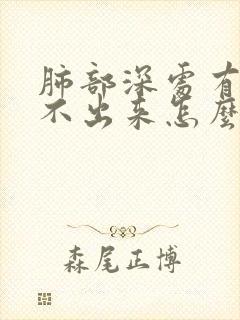 肺部深處有
不出来怎麼
森尾正博